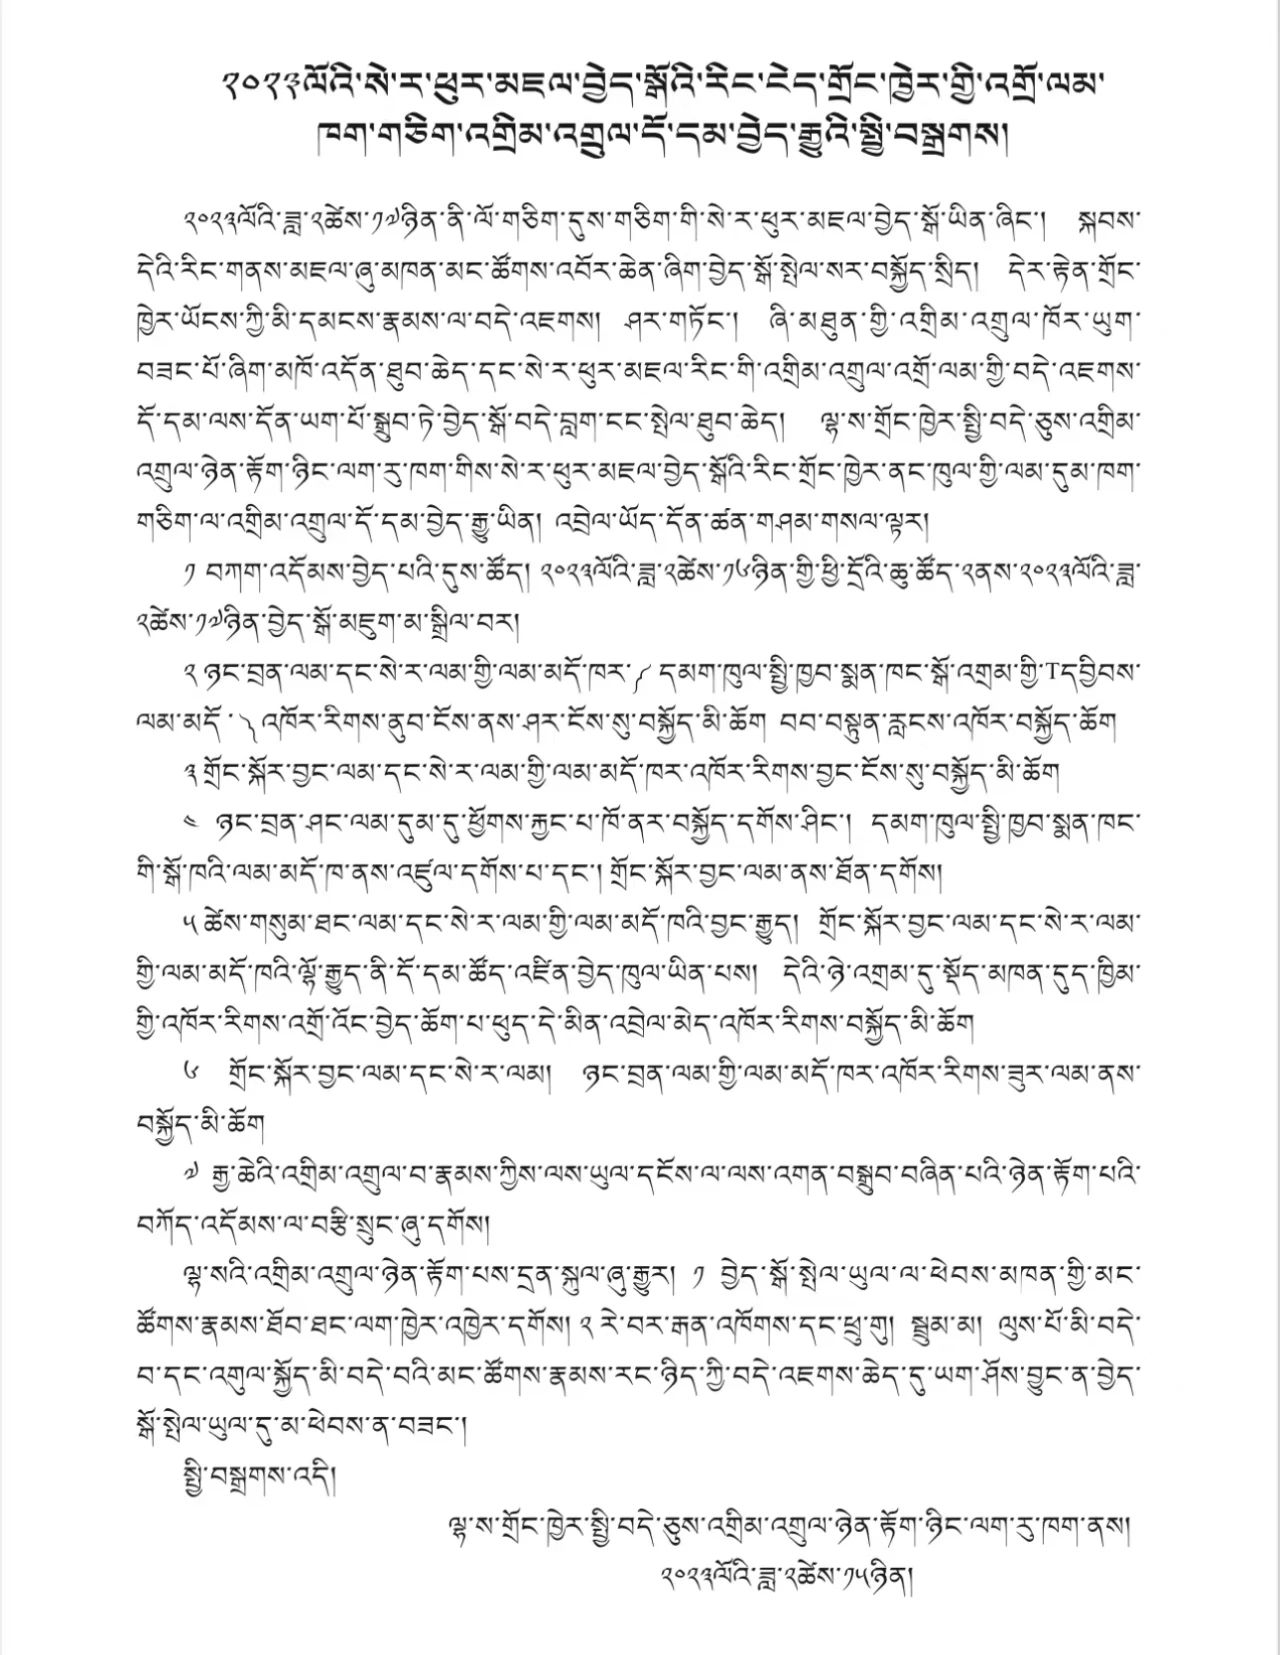 ༢༠༢༣ལོའི་སེ་ར་ཕུར་མཇལ་བྱེད་སྒོའི་རིང་ངེད་གྲོང་ཁྱེར་གྱི་འགྲོ་ལམ་
ཁག་གཅིག་འགྲིམ་འགྲུལ་དོ་དམ་བྱེད་རྒྱུའི་སྤྱི་བསྒྲགས།
༢༠༢༣ལོའི་ཟླ་༢ཚེས་༡༧ཉིན་ནི་ལོ་གཅིག་དུས་གཅིག་གི་སེ་ར་ཕུར་མཇལ་བྱེད་སྒོ་ཡིན་ཞིང་། སྐབས་
དེའི་རིང་གནས་མཇལ་ཞུ་མཁན་མང་ཚོགས་འབོར་ཆེན་ཞིག་བྱེད་སྒོ་སྤེལ་སར་བསྐྱོད་སྲིད། དེར་རྟེན་གྲོང་
ཁྱེར་ཡོངས་ཀྱི་མི་དམངས་རྣམས་ལ་བདེ་འཇགས། ཤར་གཏོང་། ཞི་མཐུན་གྱི་འགྲིམ་འགྲུལ་ཁོར་ཡུག་
བཟང་པོ་ཞིག་མཁོ་འདོན་ཐུབ་ཆེད་དང་སེ་ར་ཕུར་མཇལ་རིང་གི་འགྲིམ་འགྲུལ་འགྲོ་ལམ་གྱི་བདེ་འཇགས་
དོ་དམ་ལས་དོན་ཡག་པོ་སྒྲུབ་ཏེ་བྱེད་སྒོ་བདེ་བླག་ངང་སྤེལ་ཐུབ་ཆེད། ལྷ་ས་གྲོང་ཁྱེར་སྤྱི་བདེ་ཅུས་འགྲིམ་
འགྲུལ་ཉེན་རྟོག་ཉིང་ལག་རུ་ཁག་གིས་སེ་ར་ཕུར་མཇལ་བྱེད་སྒོའི་རིང་གྲོང་ཁྱེར་ནང་ཁུལ་གྱི་ལམ་དུམ་ཁག་
གཅིག་ལ་འགྲིམ་འགྲུལ་དོ་དམ་བྱེད་རྒྱུ་ཡིན། འབྲེལ་ཡོད་དོན་ཚན་གཤམ་གསལ་ལྟར།
༡ བཀག་འདོམས་བྱེད་པའི་དུས་ཚོད། ༢༠༢༣ལོའི་ཟླ་༢ཚེས་༡༦ཉིན་གྱི་ཕྱི་དྲོའི་ཆུ་ཚོད་༢ནས་༢༠༢༣ལོའི་ཟླ་
༢ཚེས་༡༧ཉིན་བྱེད་སྒོ་མཇུག་མ་སྒྲིལ་བར།
༢ ཉང་བྲན་ལམ་དང་སེ་ར་ལམ་གྱི་ལམ་མདོ་ཁར་༼ དམག་ཁུལ་སྤྱི་ཁྱབ་སྨན་ཁང་སྒོ་འགྲམ་གྱི་Tདབྱིབས་
ལམ་མདོ་༽འཁོར་རིགས་ནུབ་ངོས་ནས་ཤར་ངོས་སུ་བསྐྱོད་མི་ཆོག བབ་བསྟུན་རླངས་འཁོར་བསྐྱོད་ཆོག
༣ གྲོང་སྐོར་བྱང་ལམ་དང་སེ་ར་ལམ་གྱི་ལམ་མདོ་ཁར་འཁོར་རིགས་བྱང་ངོས་སུ་བསྐྱོད་མི་ཆོག
༤ ཉང་བྲན་ཤང་ལམ་དུམ་དུ་ཕྱོགས་རྐྱང་པ་ཁོ་ནར་བསྐྱོད་དགོས་ཤིང་། དམག་ཁུལ་སྤྱི་ཁྱབ་སྨན་ཁང་
གི་སྒོ་ཁའི་ལམ་མདོ་ཁ་ནས་འཛུལ་དགོས་པ་དང་། གྲོང་སྐོར་བྱང་ལམ་ནས་ཐོན་དགོས།
༥ ཚེས་གསུམ་ཐང་ལམ་དང་སེ་ར་ལམ་གྱི་ལམ་མདོ་ཁའི་བྱང་རྒྱུད། གྲོང་སྐོར་བྱང་ལམ་དང་སེ་ར་ལམ་
གྱི་ལམ་མདོ་ཁའི་ལྷོ་རྒྱུད་ནི་དོ་དམ་ཚོད་འཛིན་བྱེད་ཁུལ་ཡིན་པས། དེའི་ཉེ་འགྲམ་དུ་སྡོད་མཁན་དུད་ཁྱིམ་
གྱི་འཁོར་རིགས་འགྲོ་འོང་བྱེད་ཆོག་པ་ཕུད་དེ་མིན་འབྲེལ་མེད་འཁོར་རིགས་བསྐྱོད་མི་ཆོག
༦ གྲོང་སྐོར་བྱང་ལམ་དང་སེ་ར་ལམ། ཉང་བྲན་ལམ་གྱི་ལམ་མདོ་ཁར་འཁོར་རིགས་ཟུར་ལམ་ནས་
བསྐྱོད་མི་ཆོག
༧ རྒྱ་ཆེའི་འགྲིམ་འགྲུལ་བ་རྣམས་ཀྱིས་ལས་ཡུལ་དངོས་ལ་ལས་འགན་བསྒྲུབ་བཞིན་པའི་ཉེན་རྟོག་པའི་
བཀོད་འདོམས་ལ་བརྩི་སྲུང་ཞུ་དགོས།
ལྷ་སའི་འགྲིམ་འགྲུལ་ཉེན་རྟོག་པས་དྲན་སྐུལ་ཞུ་རྒྱུར། ༡ བྱེད་སྒོ་སྤེལ་ཡུལ་ལ་ཕེབས་མཁན་གྱི་མང་
ཚོགས་རྣམས་ཐོབ་ཐང་ལག་ཁྱེར་འཁྱེར་དགོས། ༢ རེ་བར་རྒན་འཁོགས་དང་ཕྲུ་གུ། སྦྲུམ་མ། ལུས་པོ་མི་བདེ་
བ་དང་འགུལ་སྐྱོད་མི་བདེ་བའི་མང་ཚོགས་རྣམས་རང་ཉིད་ཀྱི་བདེ་འཇགས་ཆེད་དུ་ཡག་ཤོས་བྱུང་ན་བྱེད་
སྒོ་སྤེལ་ཡུལ་དུ་མ་ཕེབས་ན་བཟང་།
སྤྱི་བསྒྲགས་འདི།
ལྷ་ས་གྲོང་ཁྱེར་སྤྱི་བདེ་ཅུས་འགྲིམ་འགྲུལ་ཉེན་རྟོག་ཉིང་ལག་རུ་ཁག་ནས།
༢༠༢༣ལོའི་ཟླ་༢ཚེས་༡༥ཉིན།